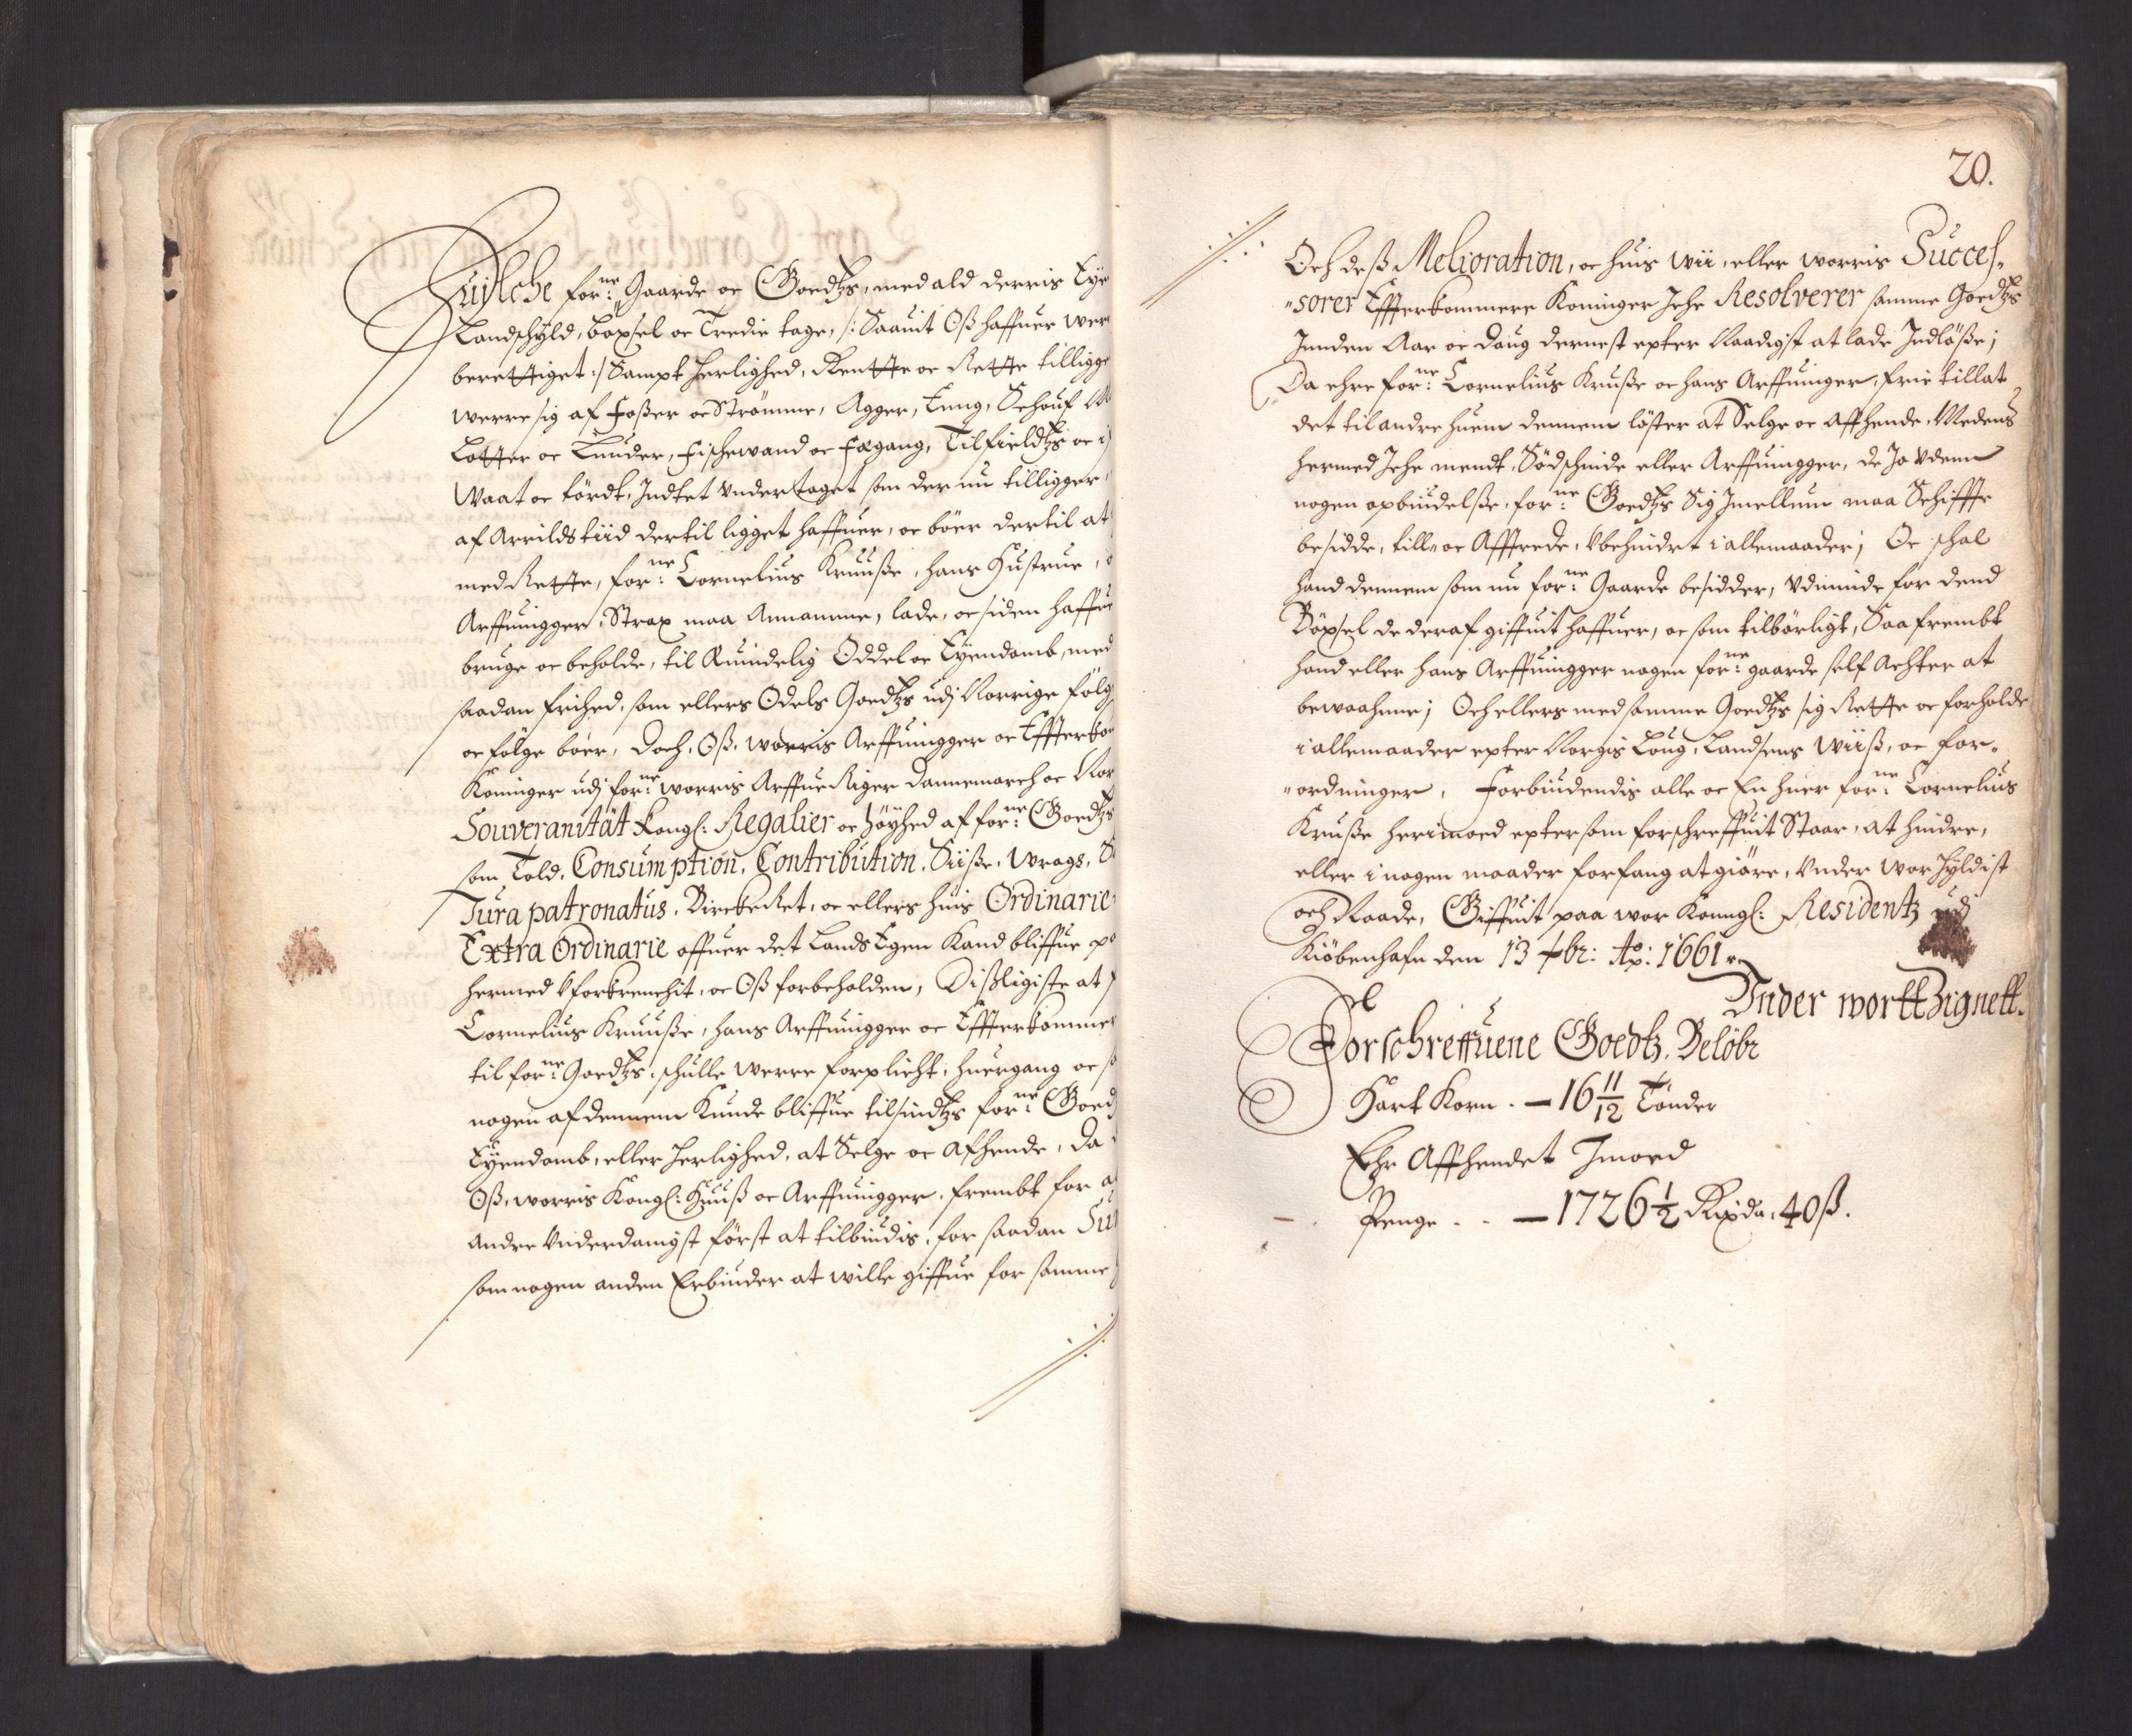 Huilche for:ne Gaarde oc Goedtzs, med ald derris Eye
Landschyld, boxsel oc Tredie tage, /: Saauit Oß haffuer wer
berettiget :/ Sampt herlighed, Rentte oc Rette tilligge
werre sig af foßer oc Strömme, Agger, Eung, Schouf
Lotter oc Lunder, fischewand oc fægang, Til fieldtzs oc
Waat oc tördt, Indtet undertaget som der nu tilligger
af Arrilds tiid dertil ligget haffuer, oc böer dertil at
med Rette, for:ne Cornelius Kruuße, hans Hustrue,
Arffuingger, Strax maa Annamme, lade, oc siden haffue
bruge oc beholde, til Euindelig Oddel oc Eyendomb, med
saadan frihed, som ellers Odels Goedtzs udj Norrige fölg
oc fölge böer, Doch, Oß, worris Arffuingger oc Effterko
Koninger udj for:ne worris Arffue Riger Dannemarch oc Nor
Souveranität Kongl: Regalier oc höyhed af for:ne Goedtzs
som Told, Consumption, Contribution, Siiße, Wrags,
Jura patronatus, Birckeret, oc ellers huis Ordinarie
Extra Ordinarie offuer det Lands Egen Kand bliffue
hermed Uforkrenchit, oc Oß forbeholden, Dißligiste at
Cornelius Kruuße, hans Arffuingger oc Effterkommer
til for:ne Goedtzs, schulle werre forplicht, huergang oc
nogen af dennem Kunde bliffue tilsindtzs for:ne Goed
Eyendomb, eller herlighed, at Selge oc afhende, Da
Oß, worris Kongl: Huuß oc Arffuingger, frembt for
andre Underdanigst först at tilbiudis, for saadan Su
som nogen anden Erbiuder at wille giffue for samme
20.
Och deß Melioration, oc huis wii, eller worris Succes-
sorer Effterkommere Koninger Iche Resolverer samme Goedtzs
Innden Aar oc Daug dernest epter Naadigst at lade Indlöße;
Da ehre for:ne Cornelius Kruße oc hans Arffuinger, frie tillat
det til andre huem dennem löster at Selge oc Affhende. Medens
hermed Iche mendt, Södschinde eller Arffuingger, de Jo Udenn
nogen opbiudelße, for:ne Goedtzs Sig Imellum maa Schiffte
besidde, till oc Afftrede, Ubehindret i allemaader; Oc schal
hand dennem som nu for:ne Gaarde besidder, Udminde for dend
Böxsel de deraf giffuit haffuer, oc som tilbörligt, Saafrembt
hand eller hans Arffuingger nogen for:ne gaarde self Achter at
bewaahnne; Och ellers med samme Goedtzs sig Rette oc forholde
i allemaader epter Norgis Loug, Landsens Wiiß, oc for-
ordninger, Forbiudendis alle oc En huer for:ne Cornelius
Kruße herimoed eptersom forschreffuit Staar, at hindre,
eller i nogen maader forfang at giöre, Under wor hyldist
och Naade, Giffuit paa wor Konngl: Residentz udj
Kiöbenhafn den 13 xbr: Ao: 1661
Under wortt Zignett.
Forschreffuene Goedtz Belöbr
Hart Korn. — 16 11/12 Tönder
Ehr Affhendet Imoed
Penge . . — 1726 ½ Rixdr. 40 ß.